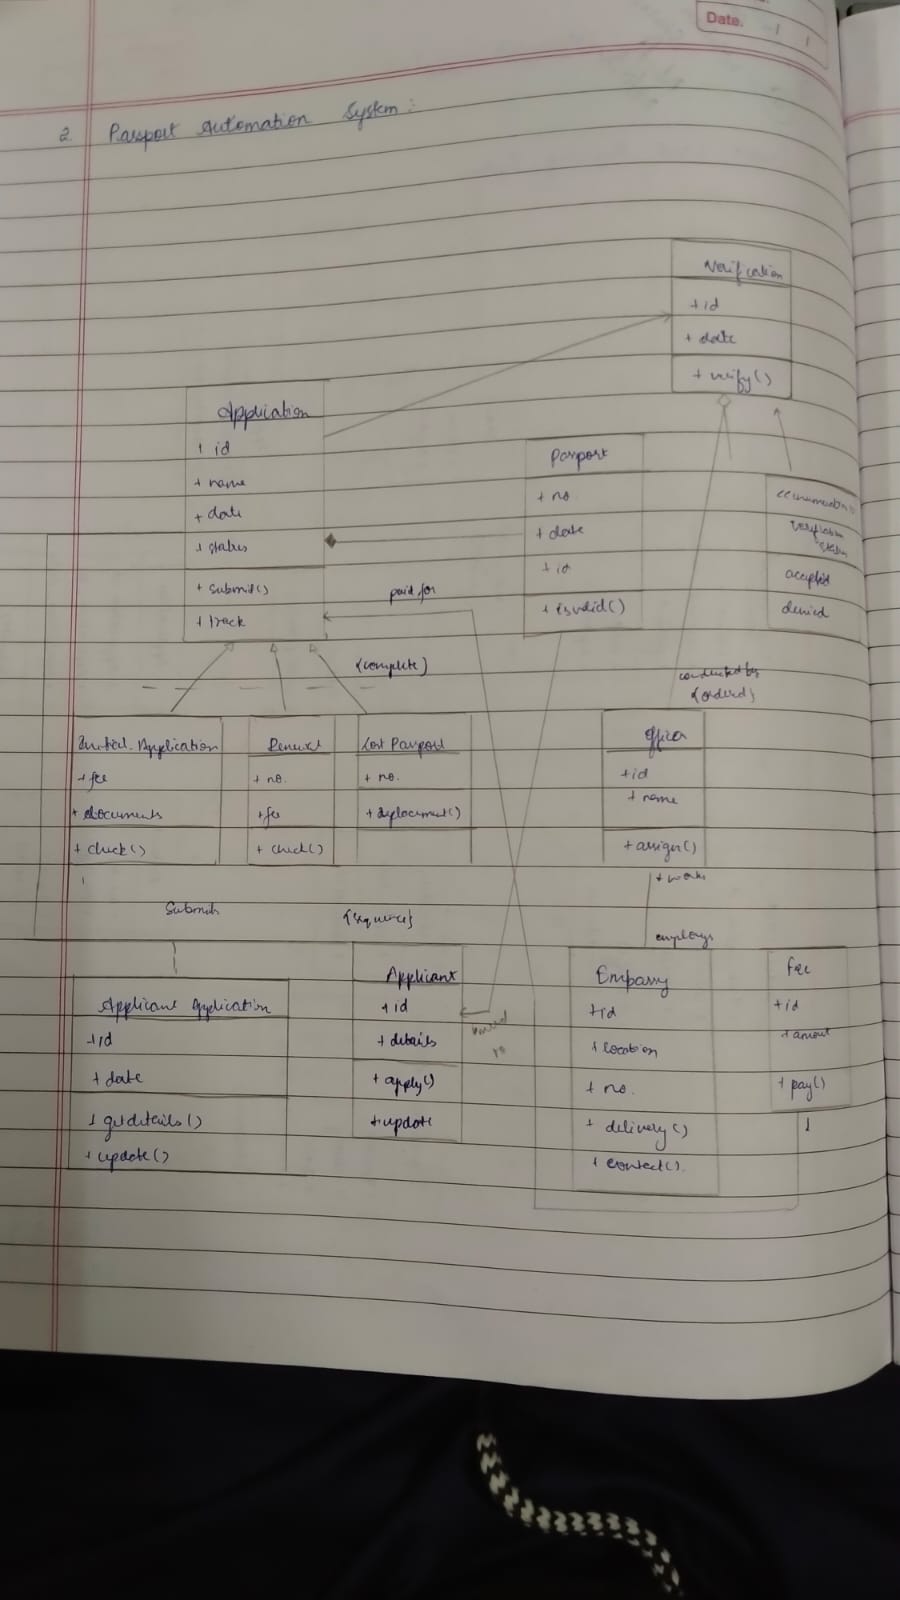 Date.
2. Passport Automation System:
Verification
+ id
+ date
+ verify()
Application
+ id
+ name
+ date
+ status
+ submit()
+ track
Passport
+ no
+ date
+ id
+ isvalid()
<<enumeration>>
verification
status
accepted
denied
paid for
{complete}
conducted by
{ordered}
Initial. Application
+ fee
+ documents
+ check()
Renewal
+ no.
+ fee
+ check()
Lost Passport
+ no.
+ replacement()
Officer
+ id
+ name
+ assign()
+ works
Submits
{sequence}
employs
Applicant Application
+ id
+ date
+ getdetails()
+ update()
Applicant
+ id
+ details
+ apply()
+ update
issued
to
Embassy
+ id
+ location
+ no.
+ delivery()
+ contact().
Fee
+ id
+ amout
+ pay()
1